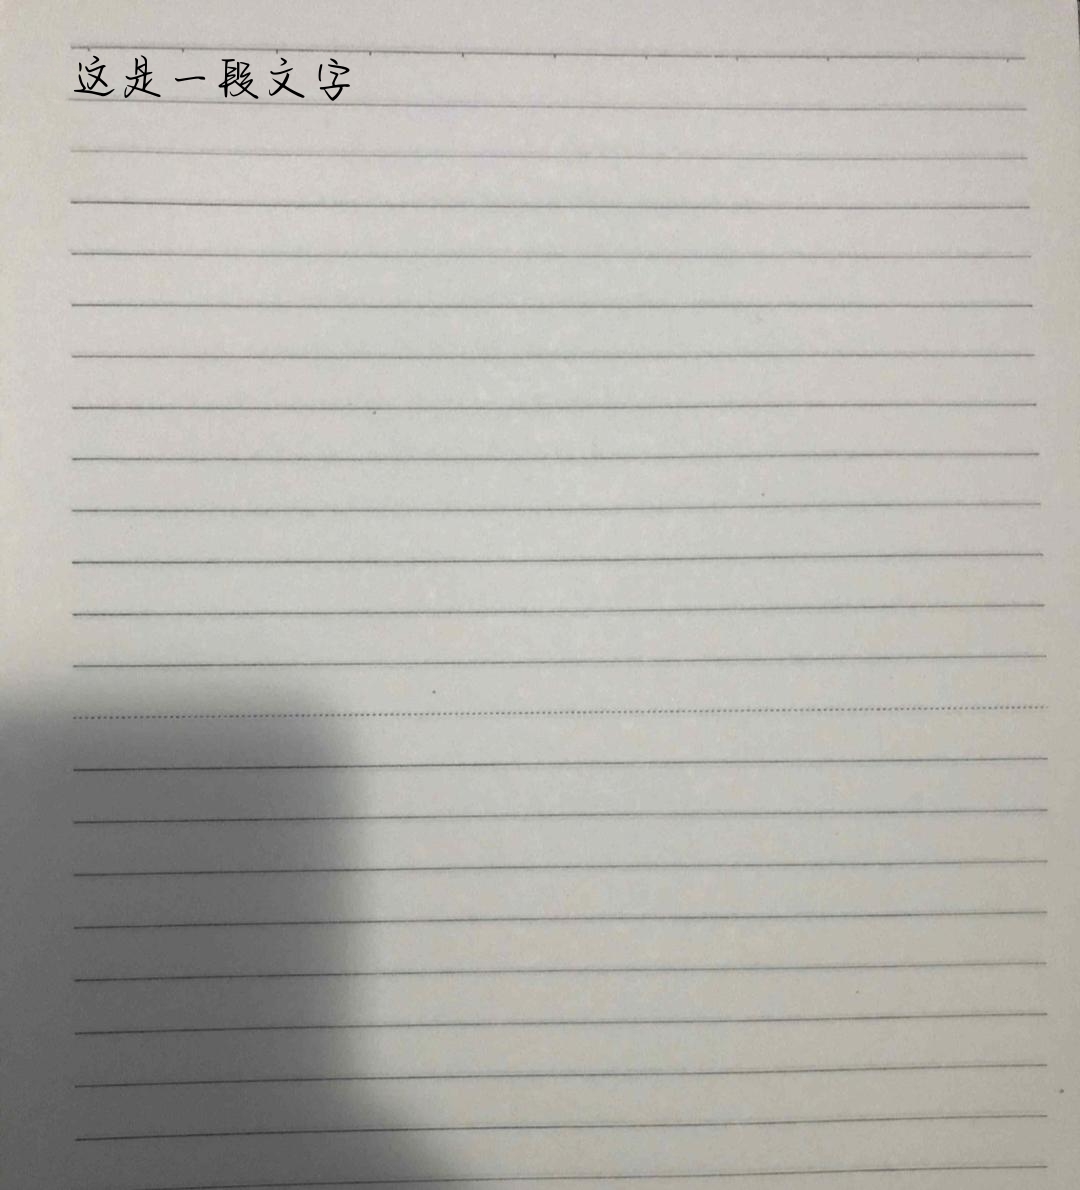 这是一段文字